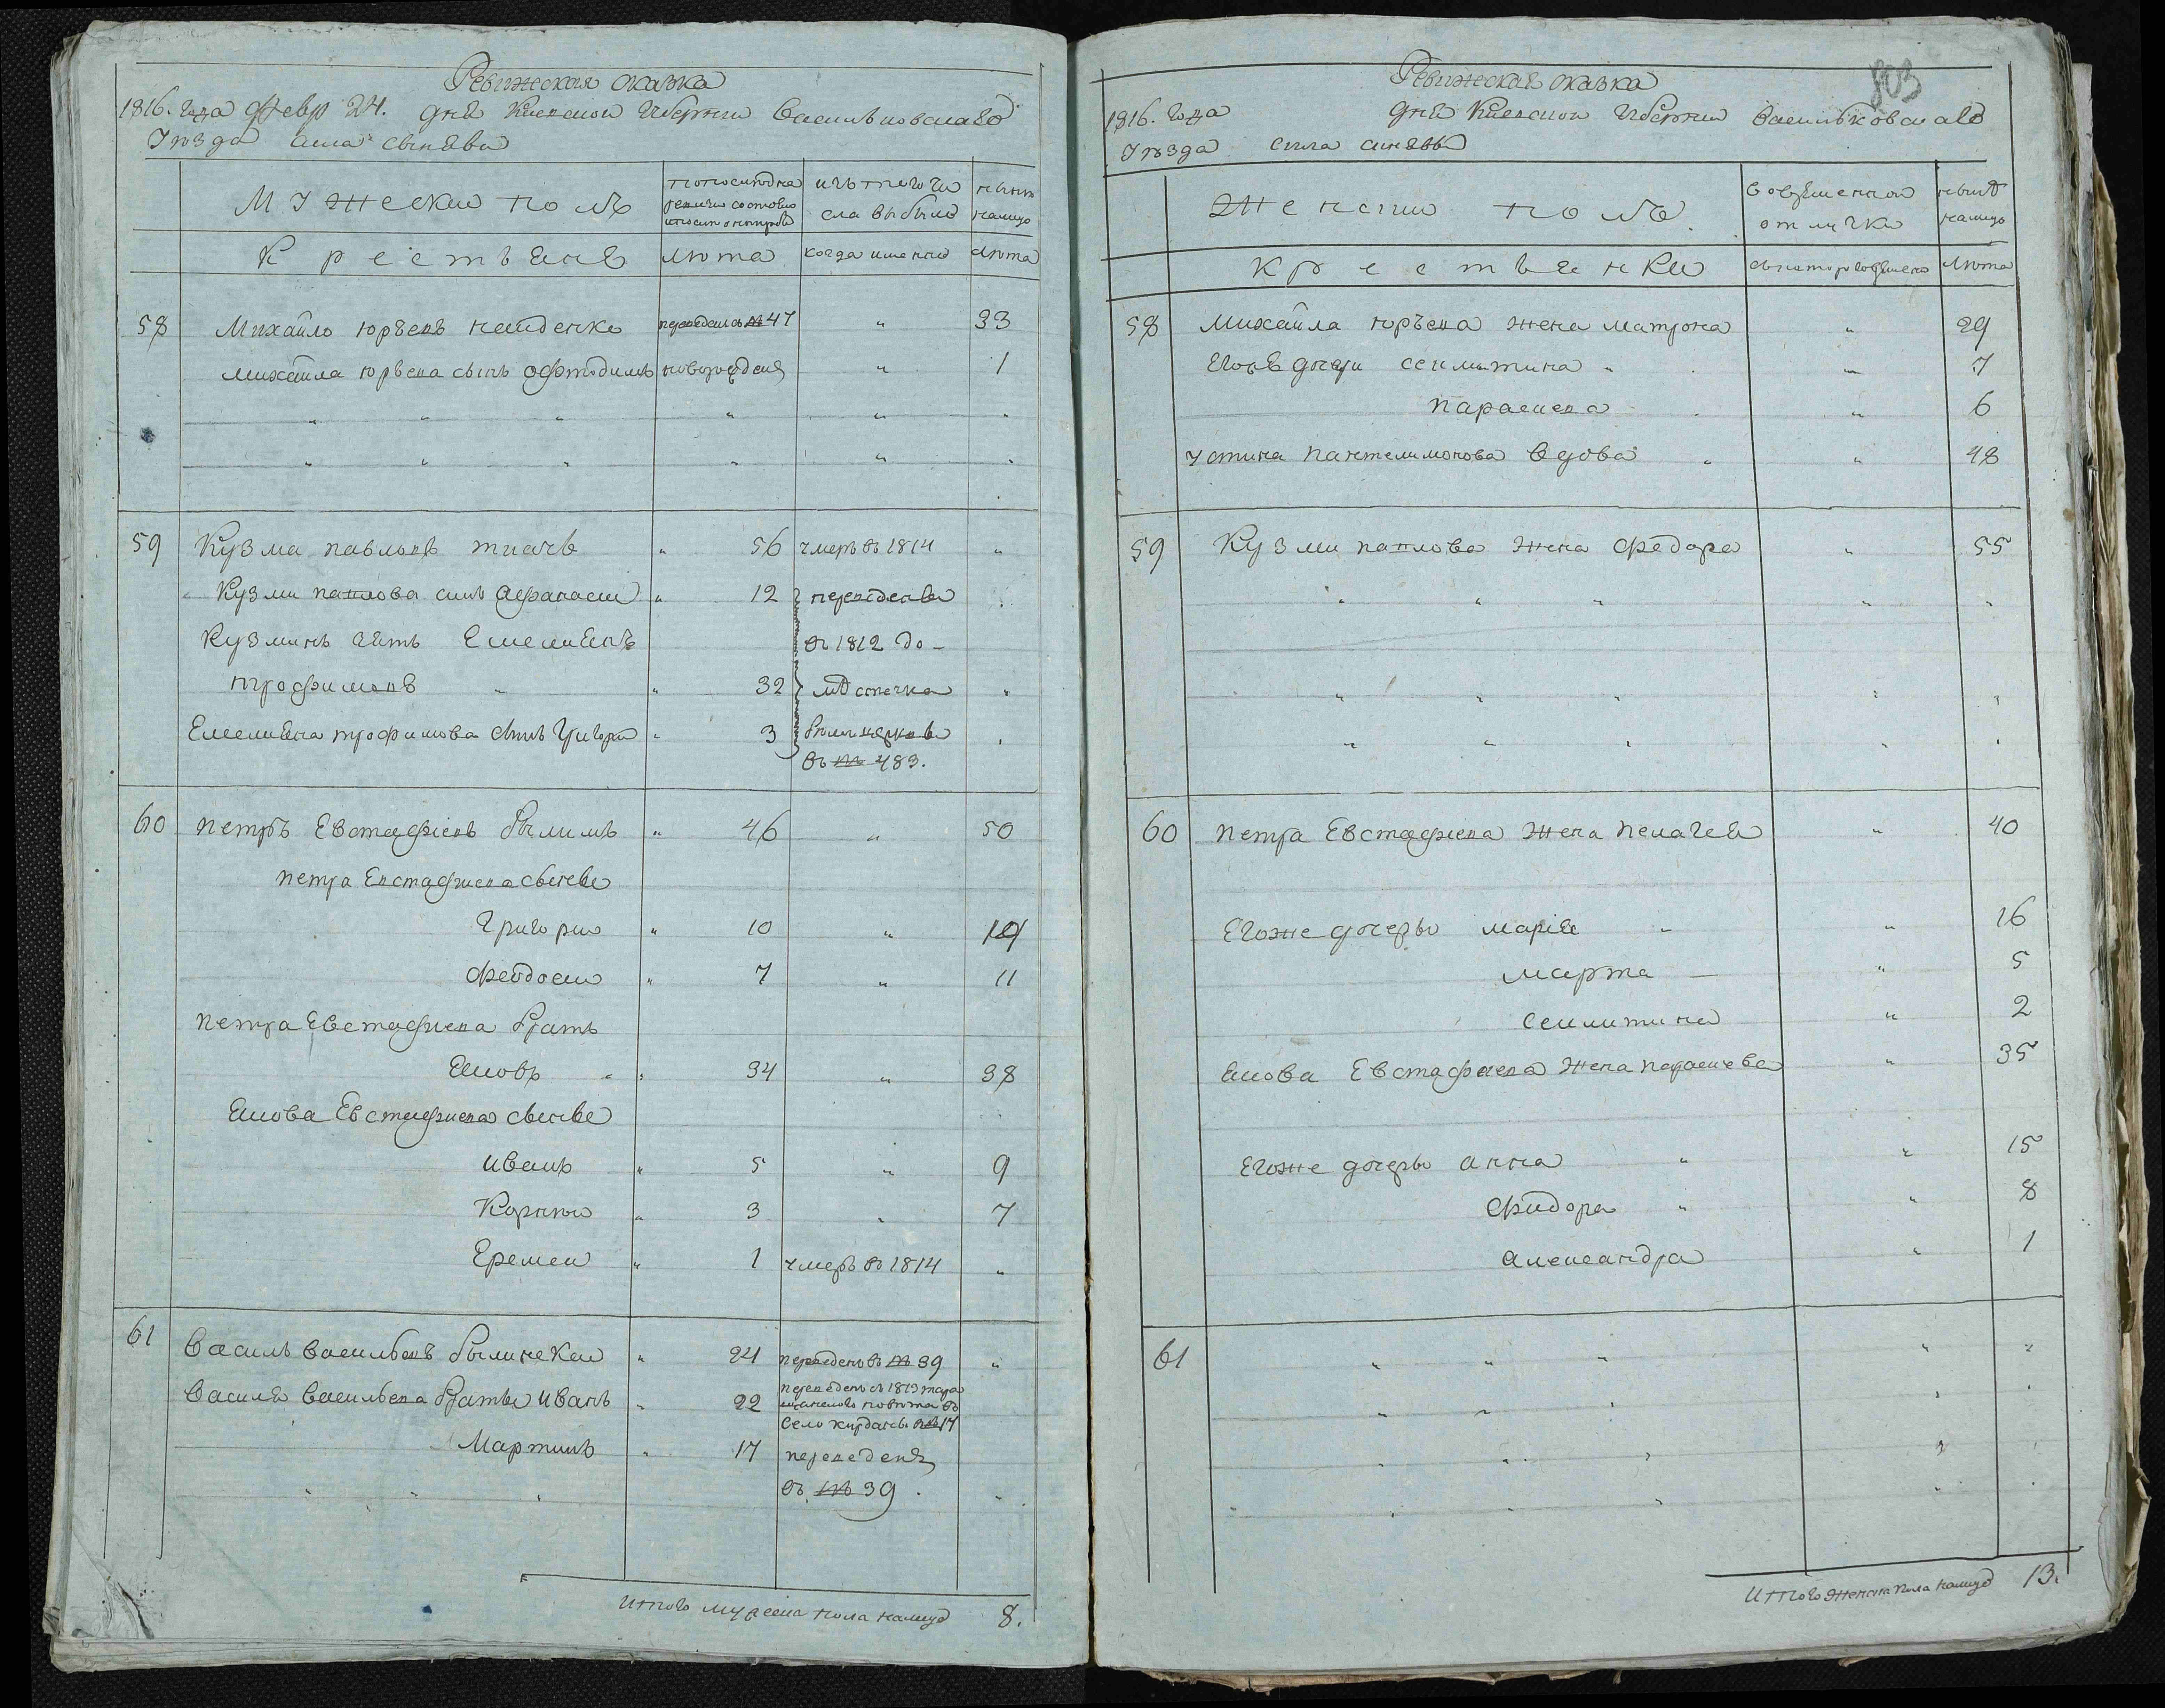 Ревижская сказка
1816. года февр 24. дня Киевской Губернии Василковскаго
Уезда села Синявы
Мужеский полъ
по последней ревизии состояло и после оной прибыло
изъ того числа выбыло
ныне налицо
Крестьяне
лета
когда именно
лета
58 Михайло юрьевъ переведенъ съ № 47 " 33
Михайла юрьева сынъ новорожденъ " 1
59 Кузма павловъ ткачъ " 56 умеръ въ 1814 "
Кузми павлова синъ Афанасий " 12 переведены
Кузминъ зять Емелиянъ въ 1812 до
трофимовъ " 32 местечка "
Емелияна трофимова синъ Григорий " 3 "
въ № 483.
60 петръ Евстафіевъ " 46 " 50
петра Евстафиева сыневе
Григорий " 10 " 14
Феодосий " 7 " 11
петра Евстафиева братъ
Яковъ " 34 " 38
Якова Евстафиева сыневе
иванъ " 5 " 9
Корний " 3 " 7
Еремей " 1 умеръ въ 1814 "
61 Василь васильевъ " 24 переведенъ въ № 39 "
Василя васильева братья иванъ " 22 переведенъ въ 1813
село № 17
Мартинъ " 17 переведенъ
въ № 39.
Итого мужеска пола налицо 8.
803
Ревижская сказка
1816. года дня Киевской Губернии Васильковскаго
Уезда села Синявы
Женский полъ
во временной отлучке
ныне налицо
Крестьянки
съ котораго времени
лета
58 Михайла юрьева жена матрона " 29
Егоже дочери секлытина " 7
параскева " 6
устина пантелимонова вдова " 48
59 Кузми павлова жена Феодора " 55
60 петра Евстафиева жена пелагея " 40
Егоже дочеры маріе " 16
марта " 5
секлитина " 2
Якова Евстафиева жена параскева " 35
Егоже дочеры анна " 15
Фидора " 8
Александра " 1
61
Итого женска пола налицо 13.